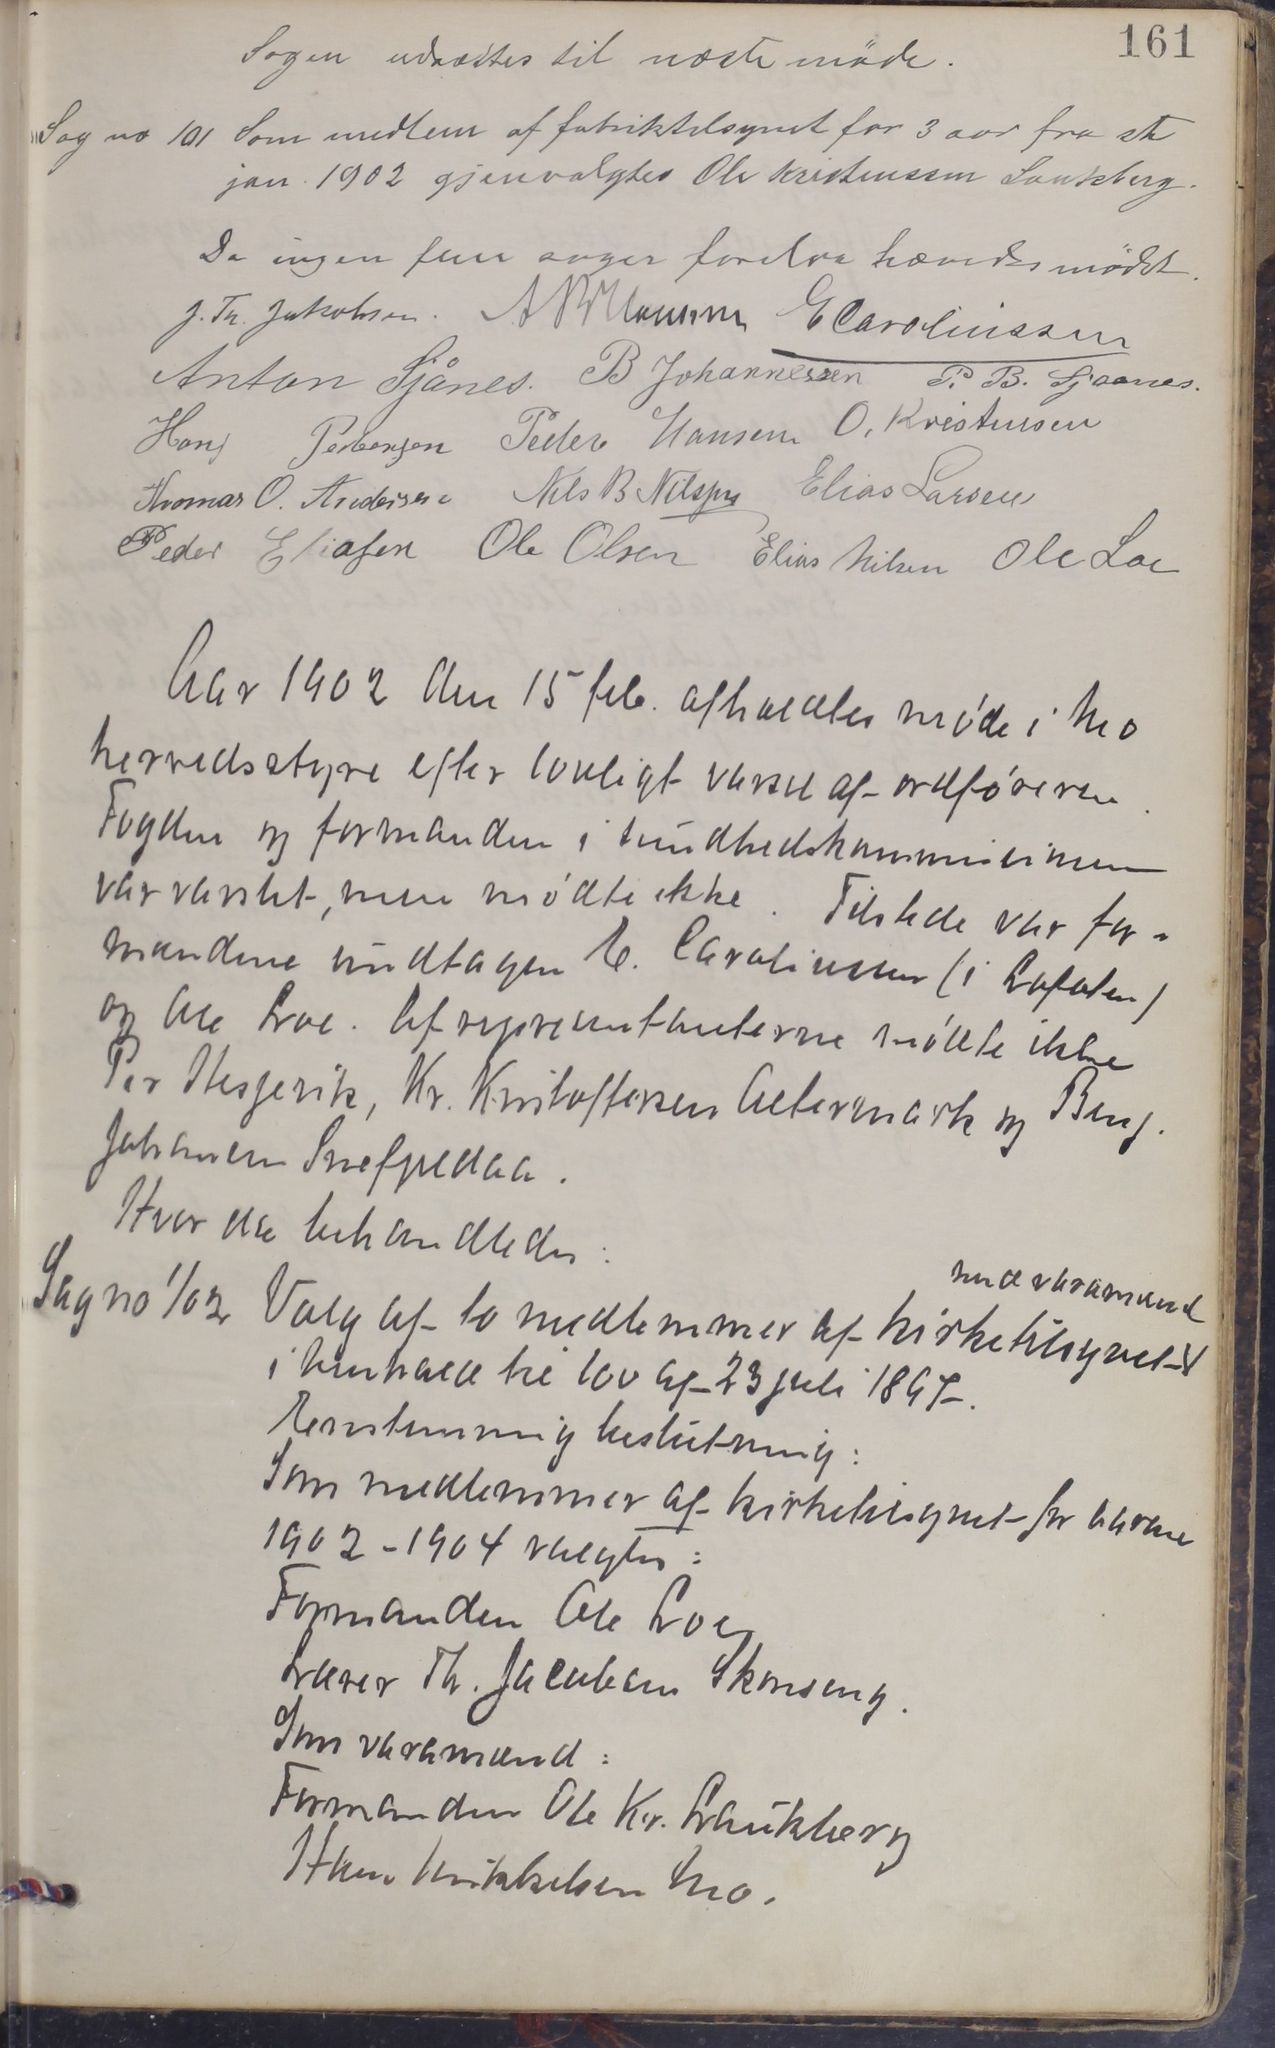 161
Sagen udsættes til næste møde.
Sag no 101 Som medlem af fabriktilsynet for 3 aar fra ste
jan. 1902 gjenvalgtes Ole Kristenssen Laukberg.
Da ingen flere sager forelaa hævedes mödet.
J. Th. Jakobsen. Hansen E Caroliussen
Anton Sjånes. B Johannessen P. B. Sjaanes.
Hans Pedersen Peder Hansen O. Kristensen
Thomas O. Andersen Nils B Nilssen Elias Larsen
Peder Eliasen Ole Olsen Elias Nilsen Ole Loe
Aar 1902 den 15 feb. afholdtes møde i Mo
herredsstyre efter lovligt varsel af ordføreren.
Fogden og formanden i sundhedskommissionen
var varslet, men mødte ikke. Tilstede var for-
mændene undtagen E. Caroliussen (i Lofoten)
og Ole Loe. Af repræsentanterne mødte ikke
Per Hesjevik, Kr. Kristoffersen Altermark og Benj.
Johansen Snefjeldaa.
Hvor da behandledes:
med varamænd
Sag no 1/02 Valg af to medlemmer af kirketilsynet
i henhold til lov af 23 juli 1897.
Eenstemmig beslutning:
Som medlemmer af kirketilsynet for aarene
1902-1904 valgtes:
Formanden Ole Loe
Lærer Th. Jacobsen Skonseng.
Som varamænd:
Formanden Ole Kr. Laukberg
Hans Mikkelsen Mo.